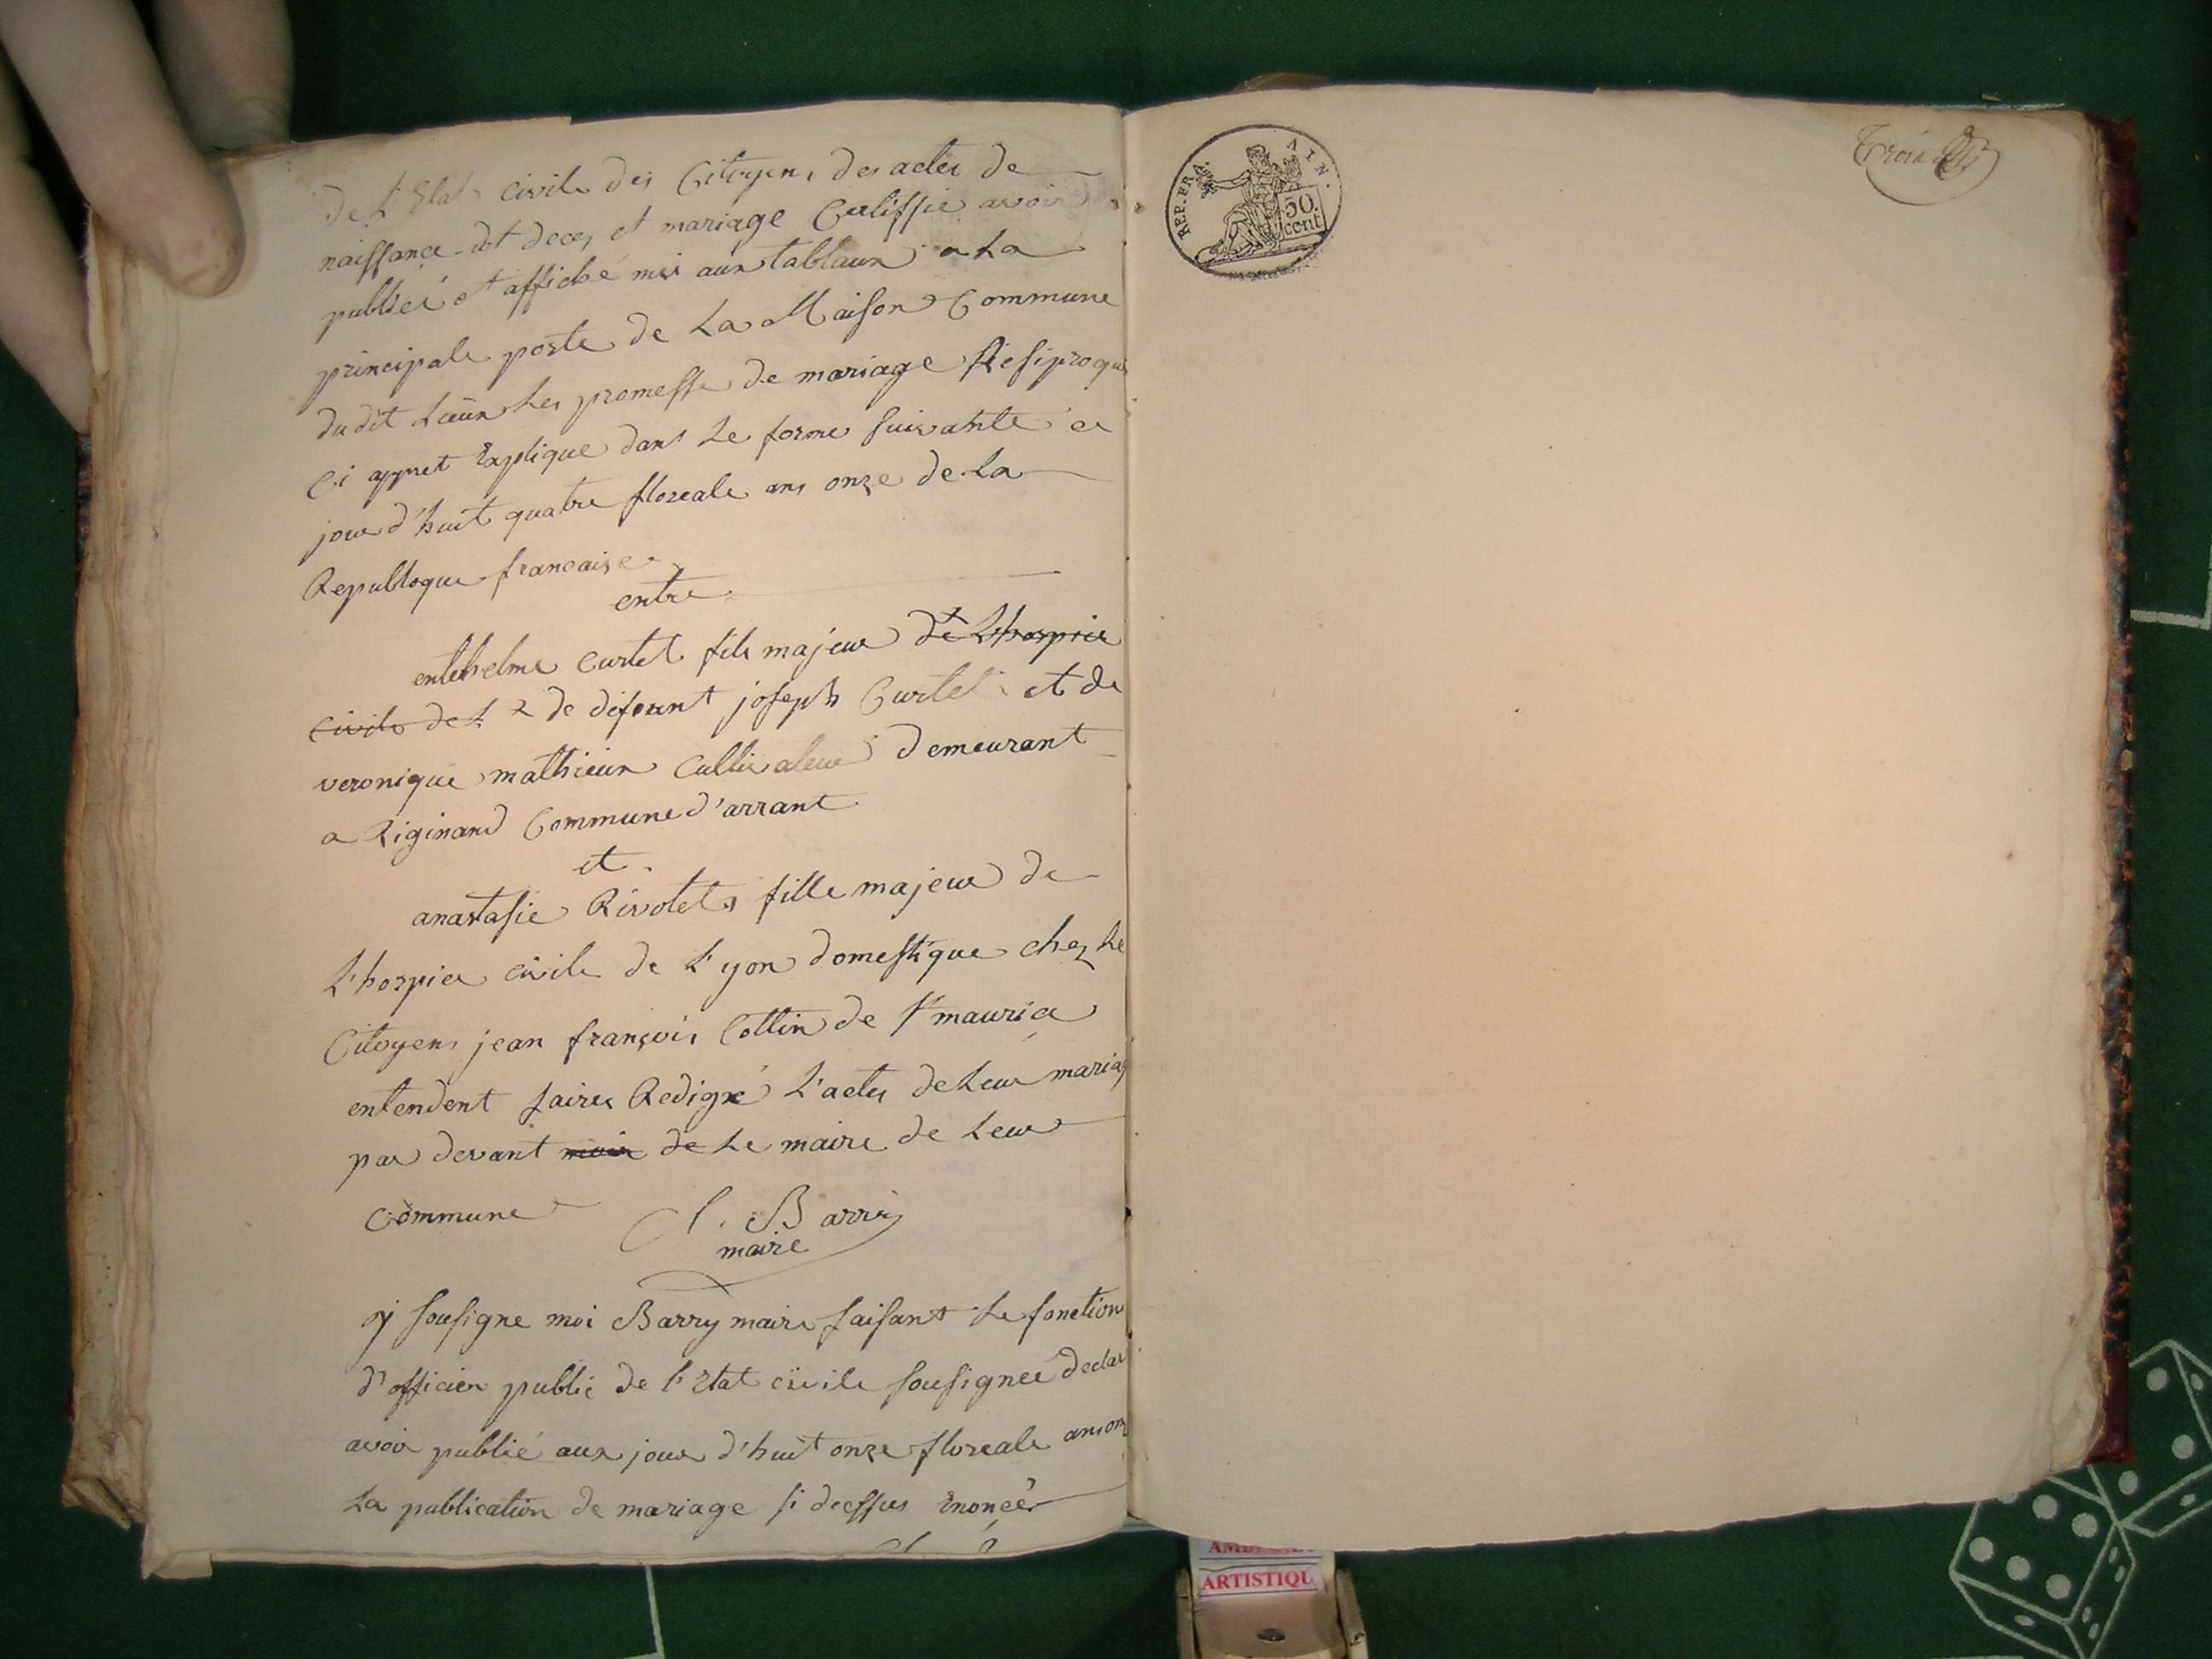 de L'Etat civile des Citoyens des actes de
naissance det deces et mariage Certiffie avoir
publieé et affiché mis aux tablaux a La
principale porte de La Maison Commune
du dit Lieux Les promesse de mariage Resiproque
Ci appret Explique dans Le forme suivante ce
jour d'huit quatre floreale ans onze de La
Republoque francaise
entre
entehelme Curtet fils majeur de Lhospice
civile de L de defunt joseph Curtet et de
veronique mathieux Cultivateur demeurant
a Riginand Commune d'arrant
et
anastasie Rivolet fille majeur de
L'hospice civile de L'yon domestique chez Le
Citoyens jean françois Cottin de st maurice
entendent faires Redigé L'actes de Leur mariag
par devant moir de Le maire de Leur
Commune
Barry
maire
sousigne moi Barry maire faisant Le fonction
d'officier public de l'Etat civile sousigneé declar
avoir publié aux jour d'huit onze floreale ans on
La publication de mariage si dessus Enonceé
REP. FRA.
AIN.
50.
cent
Trois
ARTISTIQU